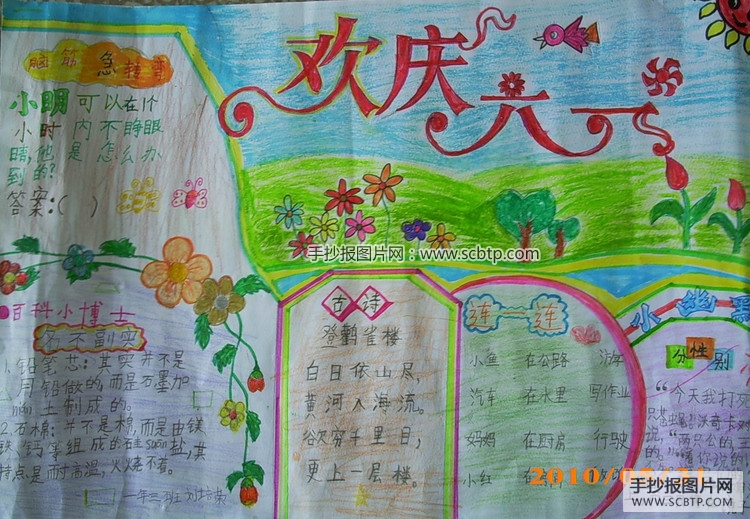 欢庆六一
脑筋急转弯
小明可以在1个
小时内不睁眼
睛,他是怎么办
到的?
答案:( )
手抄报图片网:www.scbtp.com
百科小博士
名不副实
1.铅笔芯:其实并不是
用铅做的,而是石墨加
nián土制成的。
2.石棉:并不是棉,而是由镁
铁钙等组成的硅suān盐,其
特点是耐高温,火烧不着。
一年三班
古诗
登鹳雀楼
白日依山尽,
黄河入海流。
欲穷千里目,
更上一层楼。
连一连
小鱼 在公路 游
汽车 在水里 写作业
妈妈 在厨房 行驶
小红
小幽默
分性别
“今天我打死
说的。
“两只公的三
手抄报图片网
SCBTP.COM